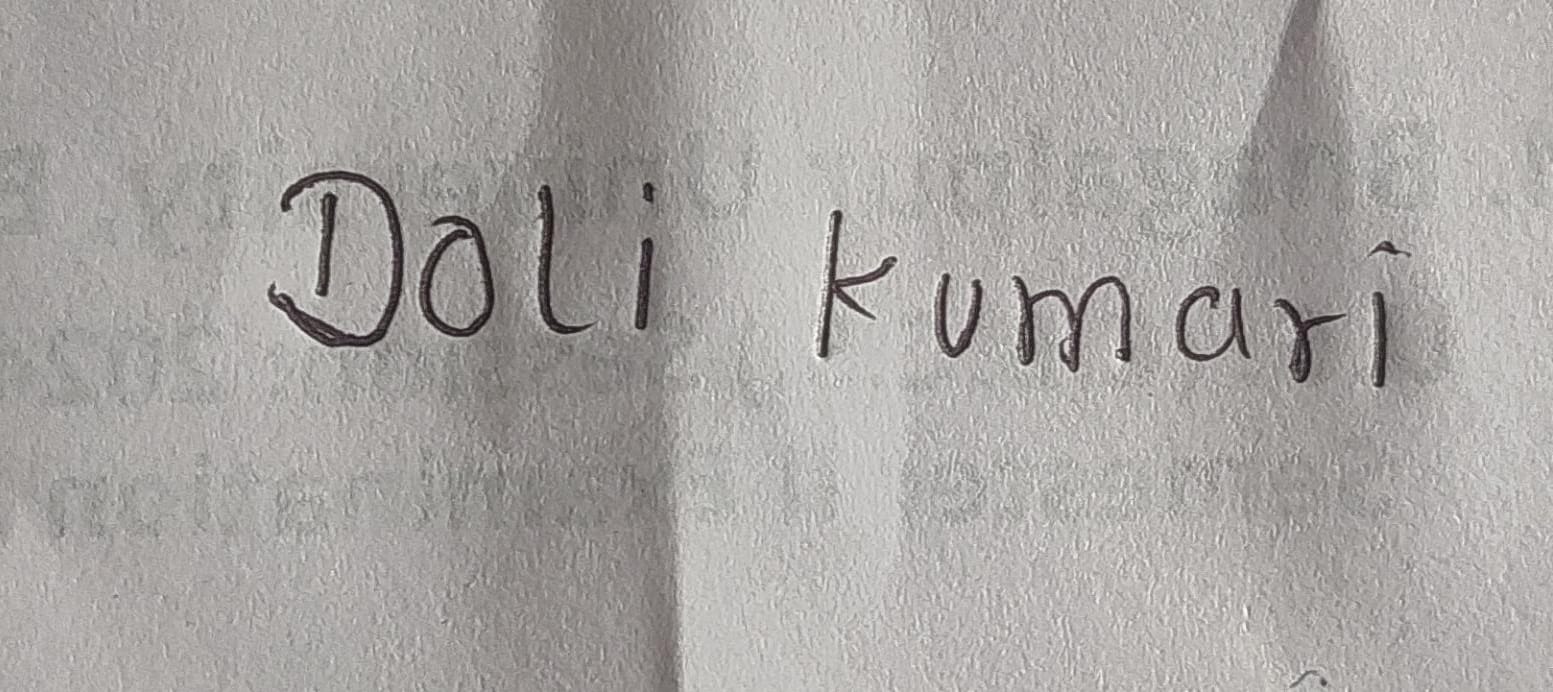 Doli kumari